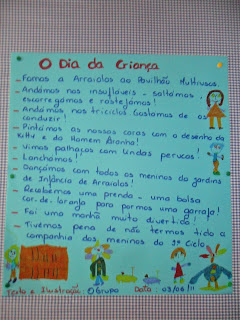 O Dia da Criança
- Fomos a Arraiolos ao Pavilhão Multiusos.
- Andámos nos insufláveis - saltámos,
escorregámos e rastejámos!
- Andámos nos triciclos. Gostamos de os
conduzir!
- Pintámos as nossas caras com o desenho da
Kitty e do Homem Aranha!
- Vimos palhaços com lindas perucas!
- Lanchamos!
- Dançámos com todos os meninos do jardins
de Infância de Arraiolos!
- Recebemos uma prenda - uma bolsa
cor-de-laranja para pormos uma garrafa!
- Foi uma manhã muito divertida!
- Tivemos pena de não termos tido a
companhia dos meninos do 1º Ciclo.
Texto e Ilustração: O Grupo Data: 03/06/11